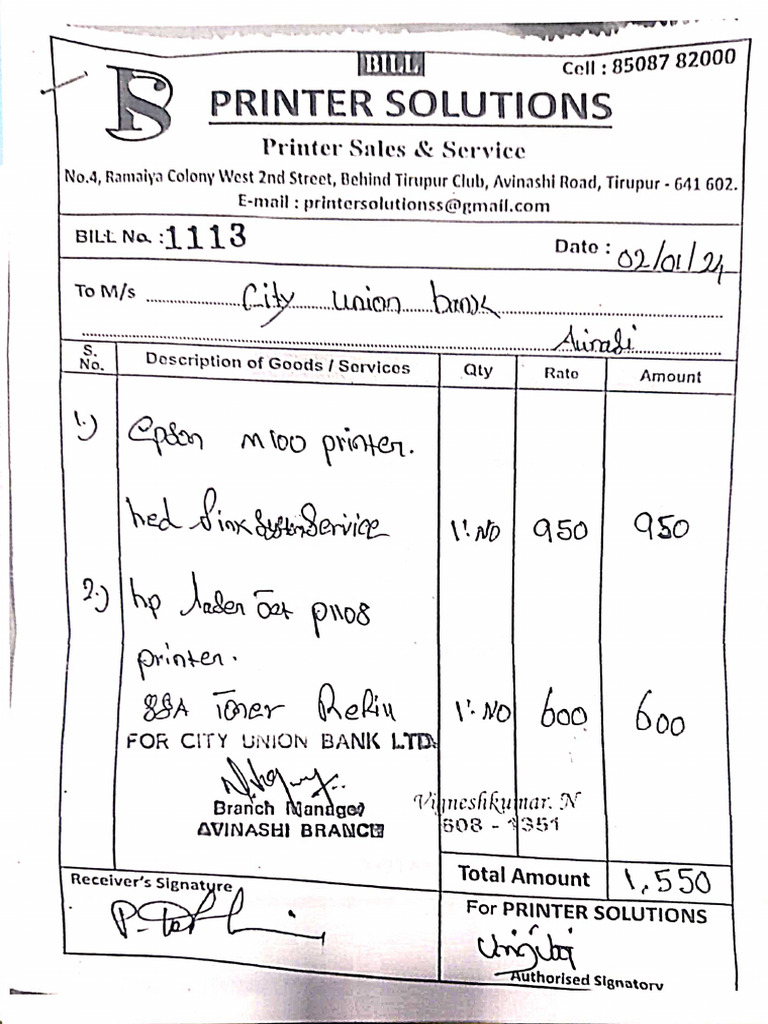 BILL
Cell : 85087 82000
PS
PRINTER SOLUTIONS
Printer Sales & Service
No.4, Ramaiya Colony West 2nd Street, Behind Tirupur Club, Avinashi Road, Tirupur - 641 602.
E-mail : printersolutionss@gmail.com
BILL No. : 1113
Date : 02/01/24
To M/s City union bank
S. No. Description of Goods / Services Qty Rate Amount
1.) Epson M100 printer.
hed Sink System Service 1'. NO 950 950
2.) hp laser Jet P1108
printer.
88A Toner Refill 1'. NO 600 600
FOR CITY UNION BANK LTD.
Branch Manager
AVINASHI BRANCH
Vigneshkumar. N
608 - 1351
Total Amount 1,550
Receiver's Signature
For PRINTER SOLUTIONS
Authorised Signatory